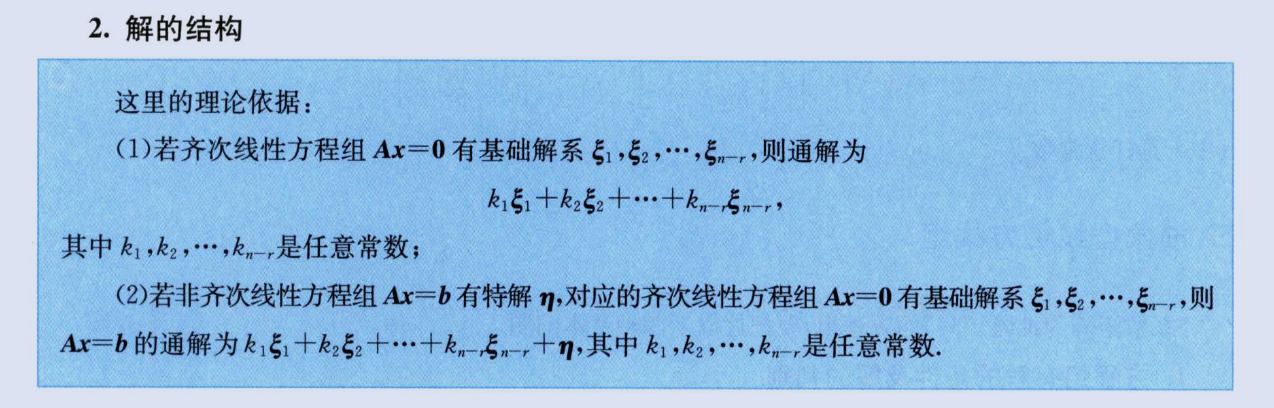 2. 解的结构
这里的理论依据:
(1)若齐次线性方程组 Ax=0 有基础解系 ξ₁,ξ₂,⋯,ξₙ₋ᵣ,则通解为
k₁ξ₁+k₂ξ₂+⋯+kₙ₋ᵣξₙ₋ᵣ,
其中 k₁,k₂,⋯,kₙ₋ᵣ是任意常数;
(2)若非齐次线性方程组 Ax=b 有特解 η,对应的齐次线性方程组 Ax=0 有基础解系 ξ₁,ξ₂,⋯,ξₙ₋ᵣ,则
Ax=b 的通解为 k₁ξ₁+k₂ξ₂+⋯+kₙ₋ᵣξₙ₋ᵣ+η,其中 k₁,k₂,⋯,kₙ₋ᵣ是任意常数.